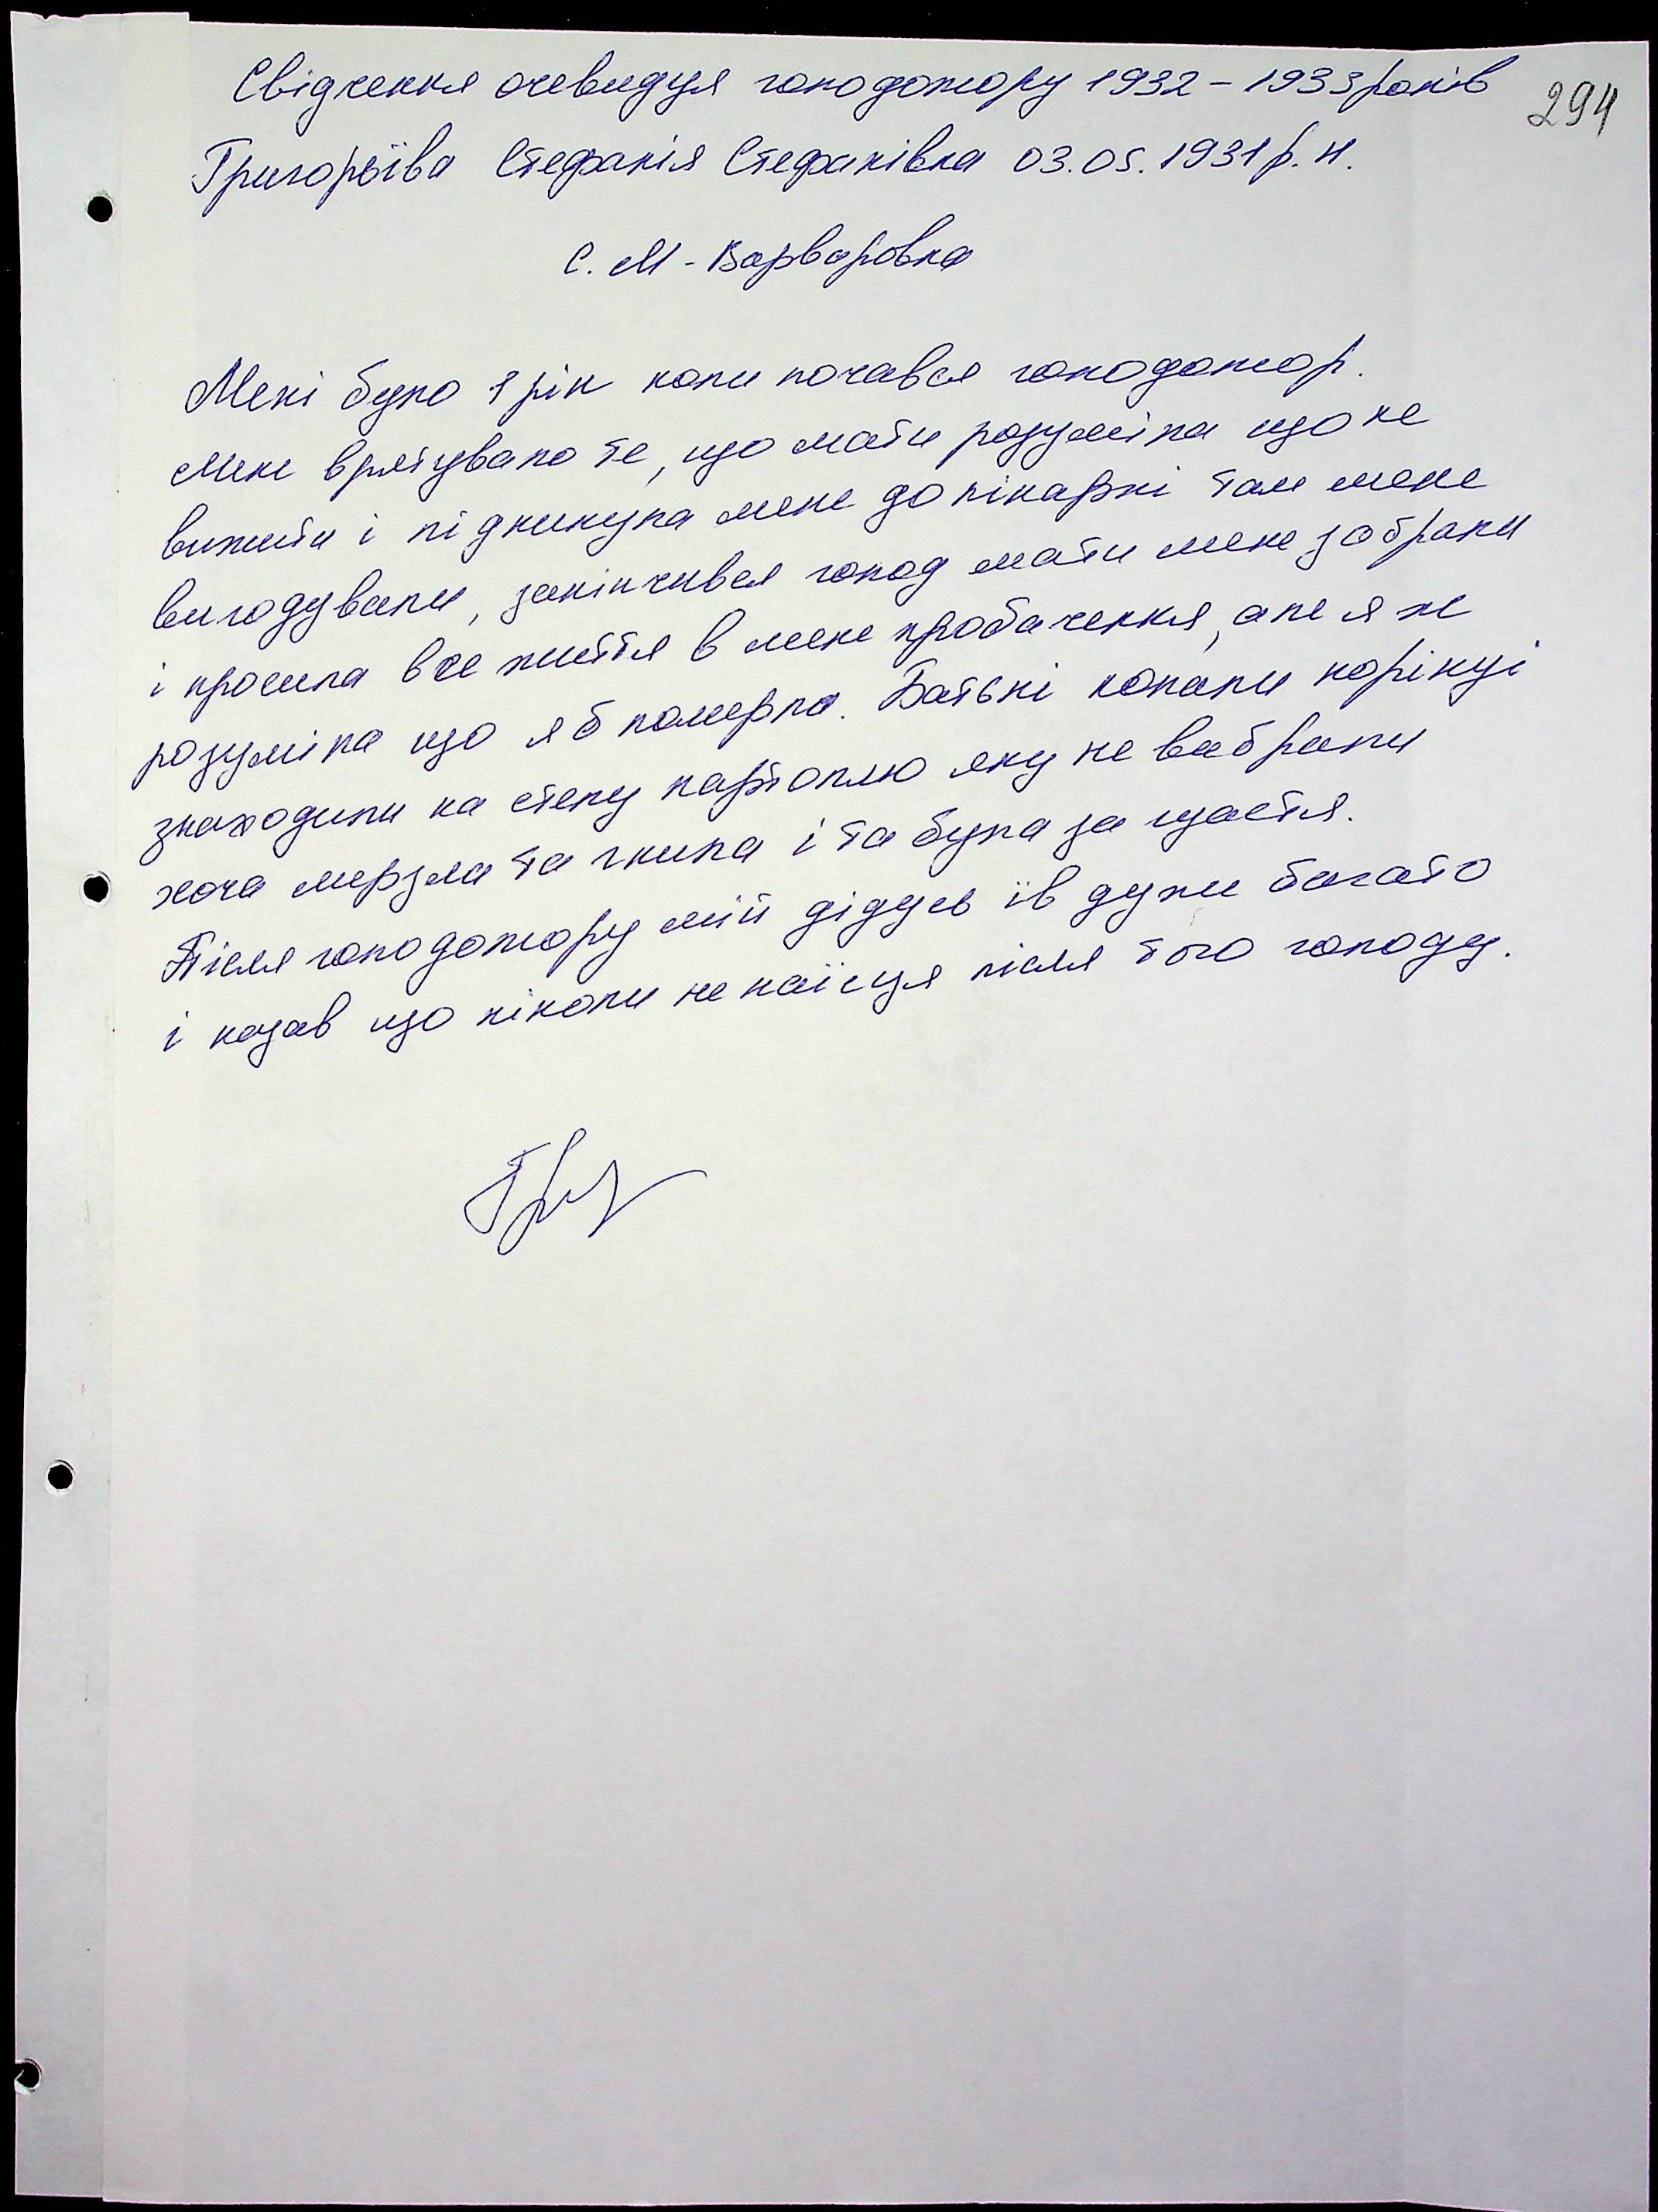 Свідчення очевидця голодомору 1932 - 1933 років
294
Григорьїва Стефанія Стефанівна 03.05.1931 р. н.
с. М - Варваровка
Мені було 1 рік коли почався голодомор.
Мене врятувало те, що мати розуміла що не
вижити і підкинула мене до лікарні там мене
вигодували, закінчився голод мати мене забрали
і просила все життя в мене пробачення, але я ж
розуміла що я б померла. Батькі копали корінці
знаходили на степу картоплю яку не вабрали
хоча мерзла та гнила і та була за щастя.
Після голодомору мій дідусь їв дуже багато
і казав що ніколи не наїсця після того голоду.